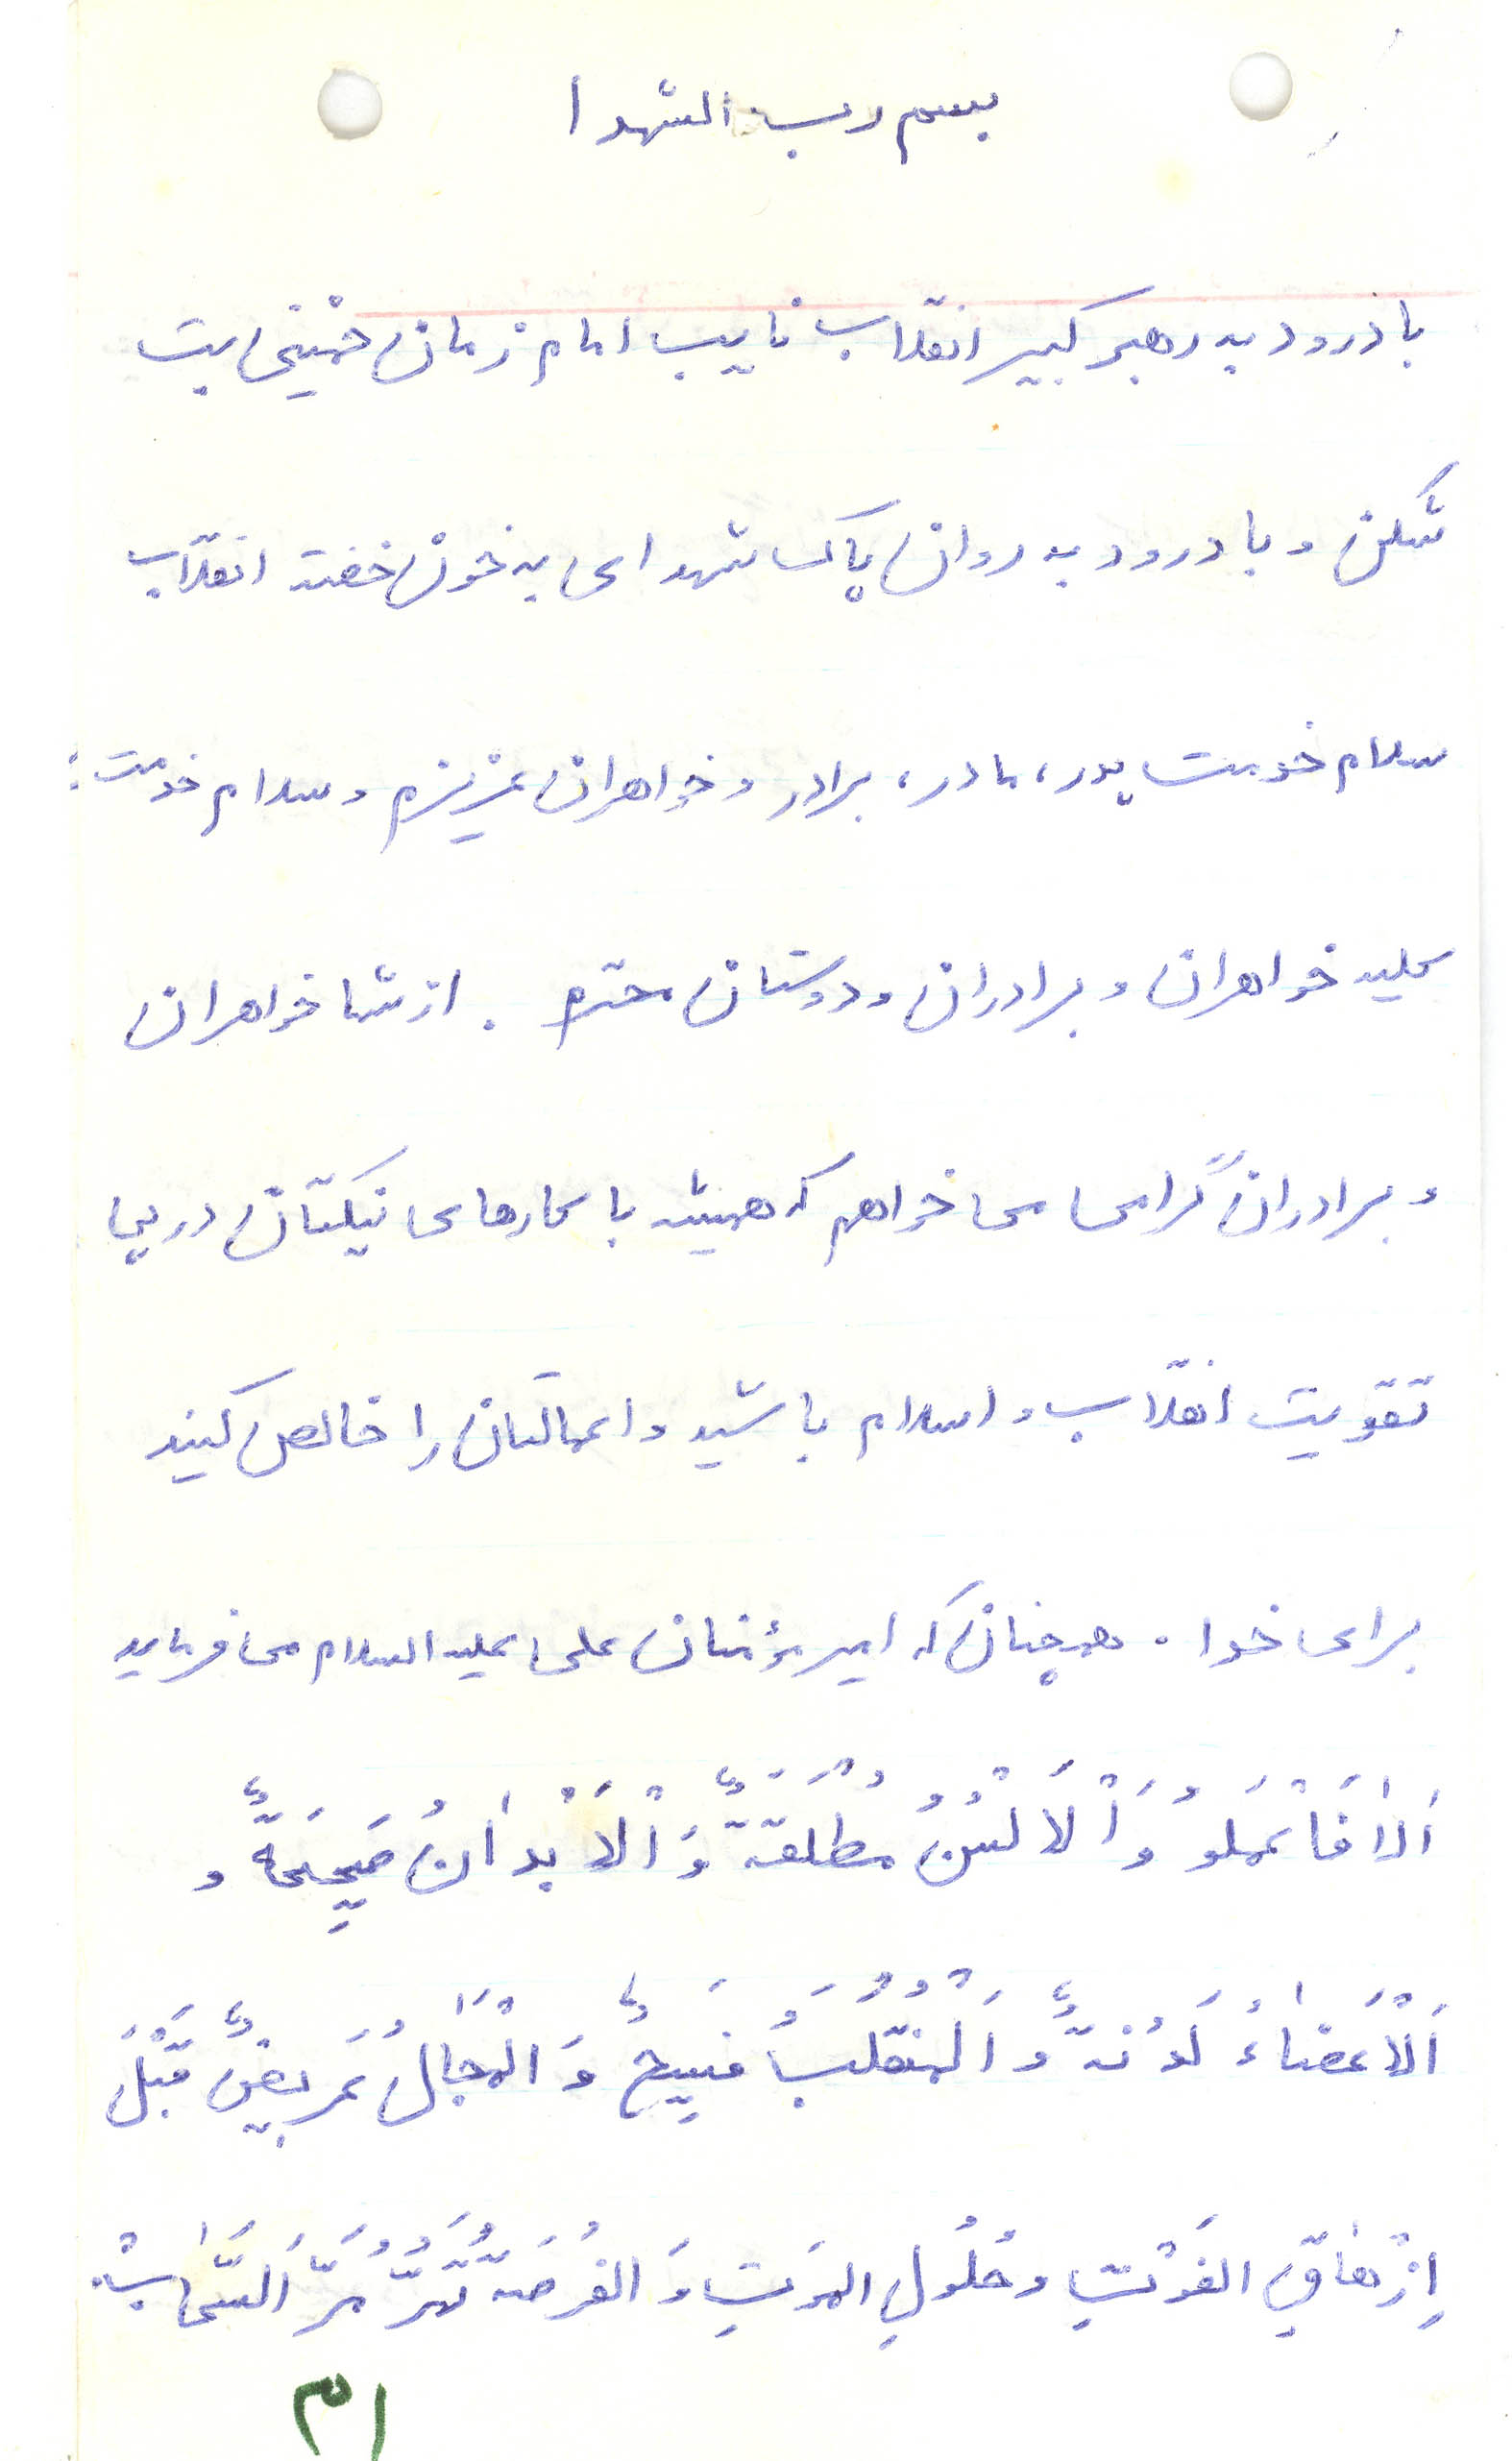 بسم رب الشهدا
با درود به رهبر کبیر انقلاب نایب امام زمان خمینی بت
شکن و با درود به روان پاک شهدای به خون خفته انقلاب
سلام خدمت پدر، مادر، برادر و خواهران عزیزم و سلام خدمت:
کلیه خواهران و برادران و دوستان محترم . از شما خواهران
و برادران گرامی می خواهم که همیشه با کارهای نیکتان در پی
تقویت انقلاب و اسلام باشید و اعمالتان را خالص کنید
برای خدا . همچنان که امیر مؤمنان علی علیه السلام می فرماید
اَلاٰ فَاعْمَلُو وَ اَلْاَلْسُنُ مُطْلَقَةٌ وَ اَلْاَبْدٰانُ صَحِیحَةٌ و
اَلْاَعْضٰاءُ لَدُنَةٌ وَ اَلْمُنْقَلَبُ فَسِیحٌ وَ الْمَجٰالُ عَرِیضٌ قَبْلَ
اِرْهٰاقِ الفَوْتِ و حُلُولِ المَوتِ وَ الفُرصَةُ تَمُرُّ مَرَّ السَّحٰابْ.
۳۱